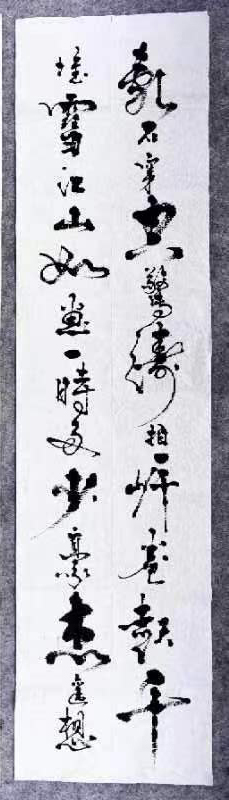 亂石穿空驚濤拍岸卷起千
堆雪江山如畫一時多少豪杰遙想